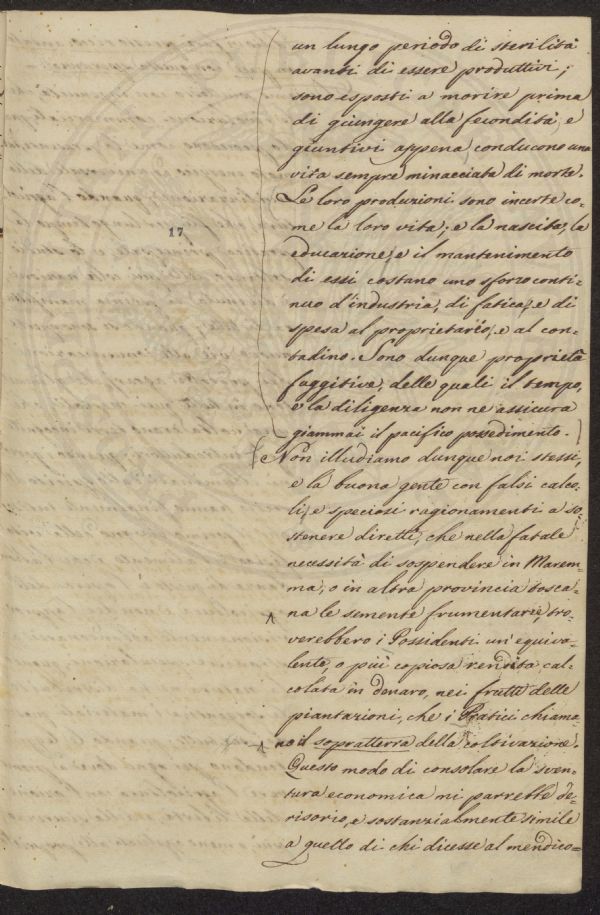 un lungo periodo di sterilità
avanti di essere produttivi;
sono esposti a morire prima
di giungere alla fecondità, e
giuntivi appena conducono una
vita sempre minacciata di morte.
Le loro produzioni sono incerte co-
me la loro vita; e la nascita, la
17
educazione, e il mantenimento
di essi costano uno sforzo conti-
nuo d'industria, di fatica, e di
spesa al proprietario, e al con-
tadino. Sono dunque proprietà
fuggitive, delle quali il tempo,
e la diligenza non ne assicura
giammai il pacifico possedimento.
Non illudiamo dunque noi stessi,
e la buona gente con falsi calco-
li, e speciosi ragionamenti a so-
stenere diretti, che nella fatale
necessità di sospendere in Marem-
ma, o in altra provincia tosca-
na le semente frumentarie, tro-
verebbero i Possidenti un'equiva-
lente, o più copiosa rendita cal-
colata in denaro, nei frutti delle
piantazioni, che i Pratici chiama-
no il sopratterra della coltivazione.
Questo modo di consolare la sven-
tura economica mi parrebbe de-
risorio, e sostanzialmente simile
a quello di chi dicesse al mendico-